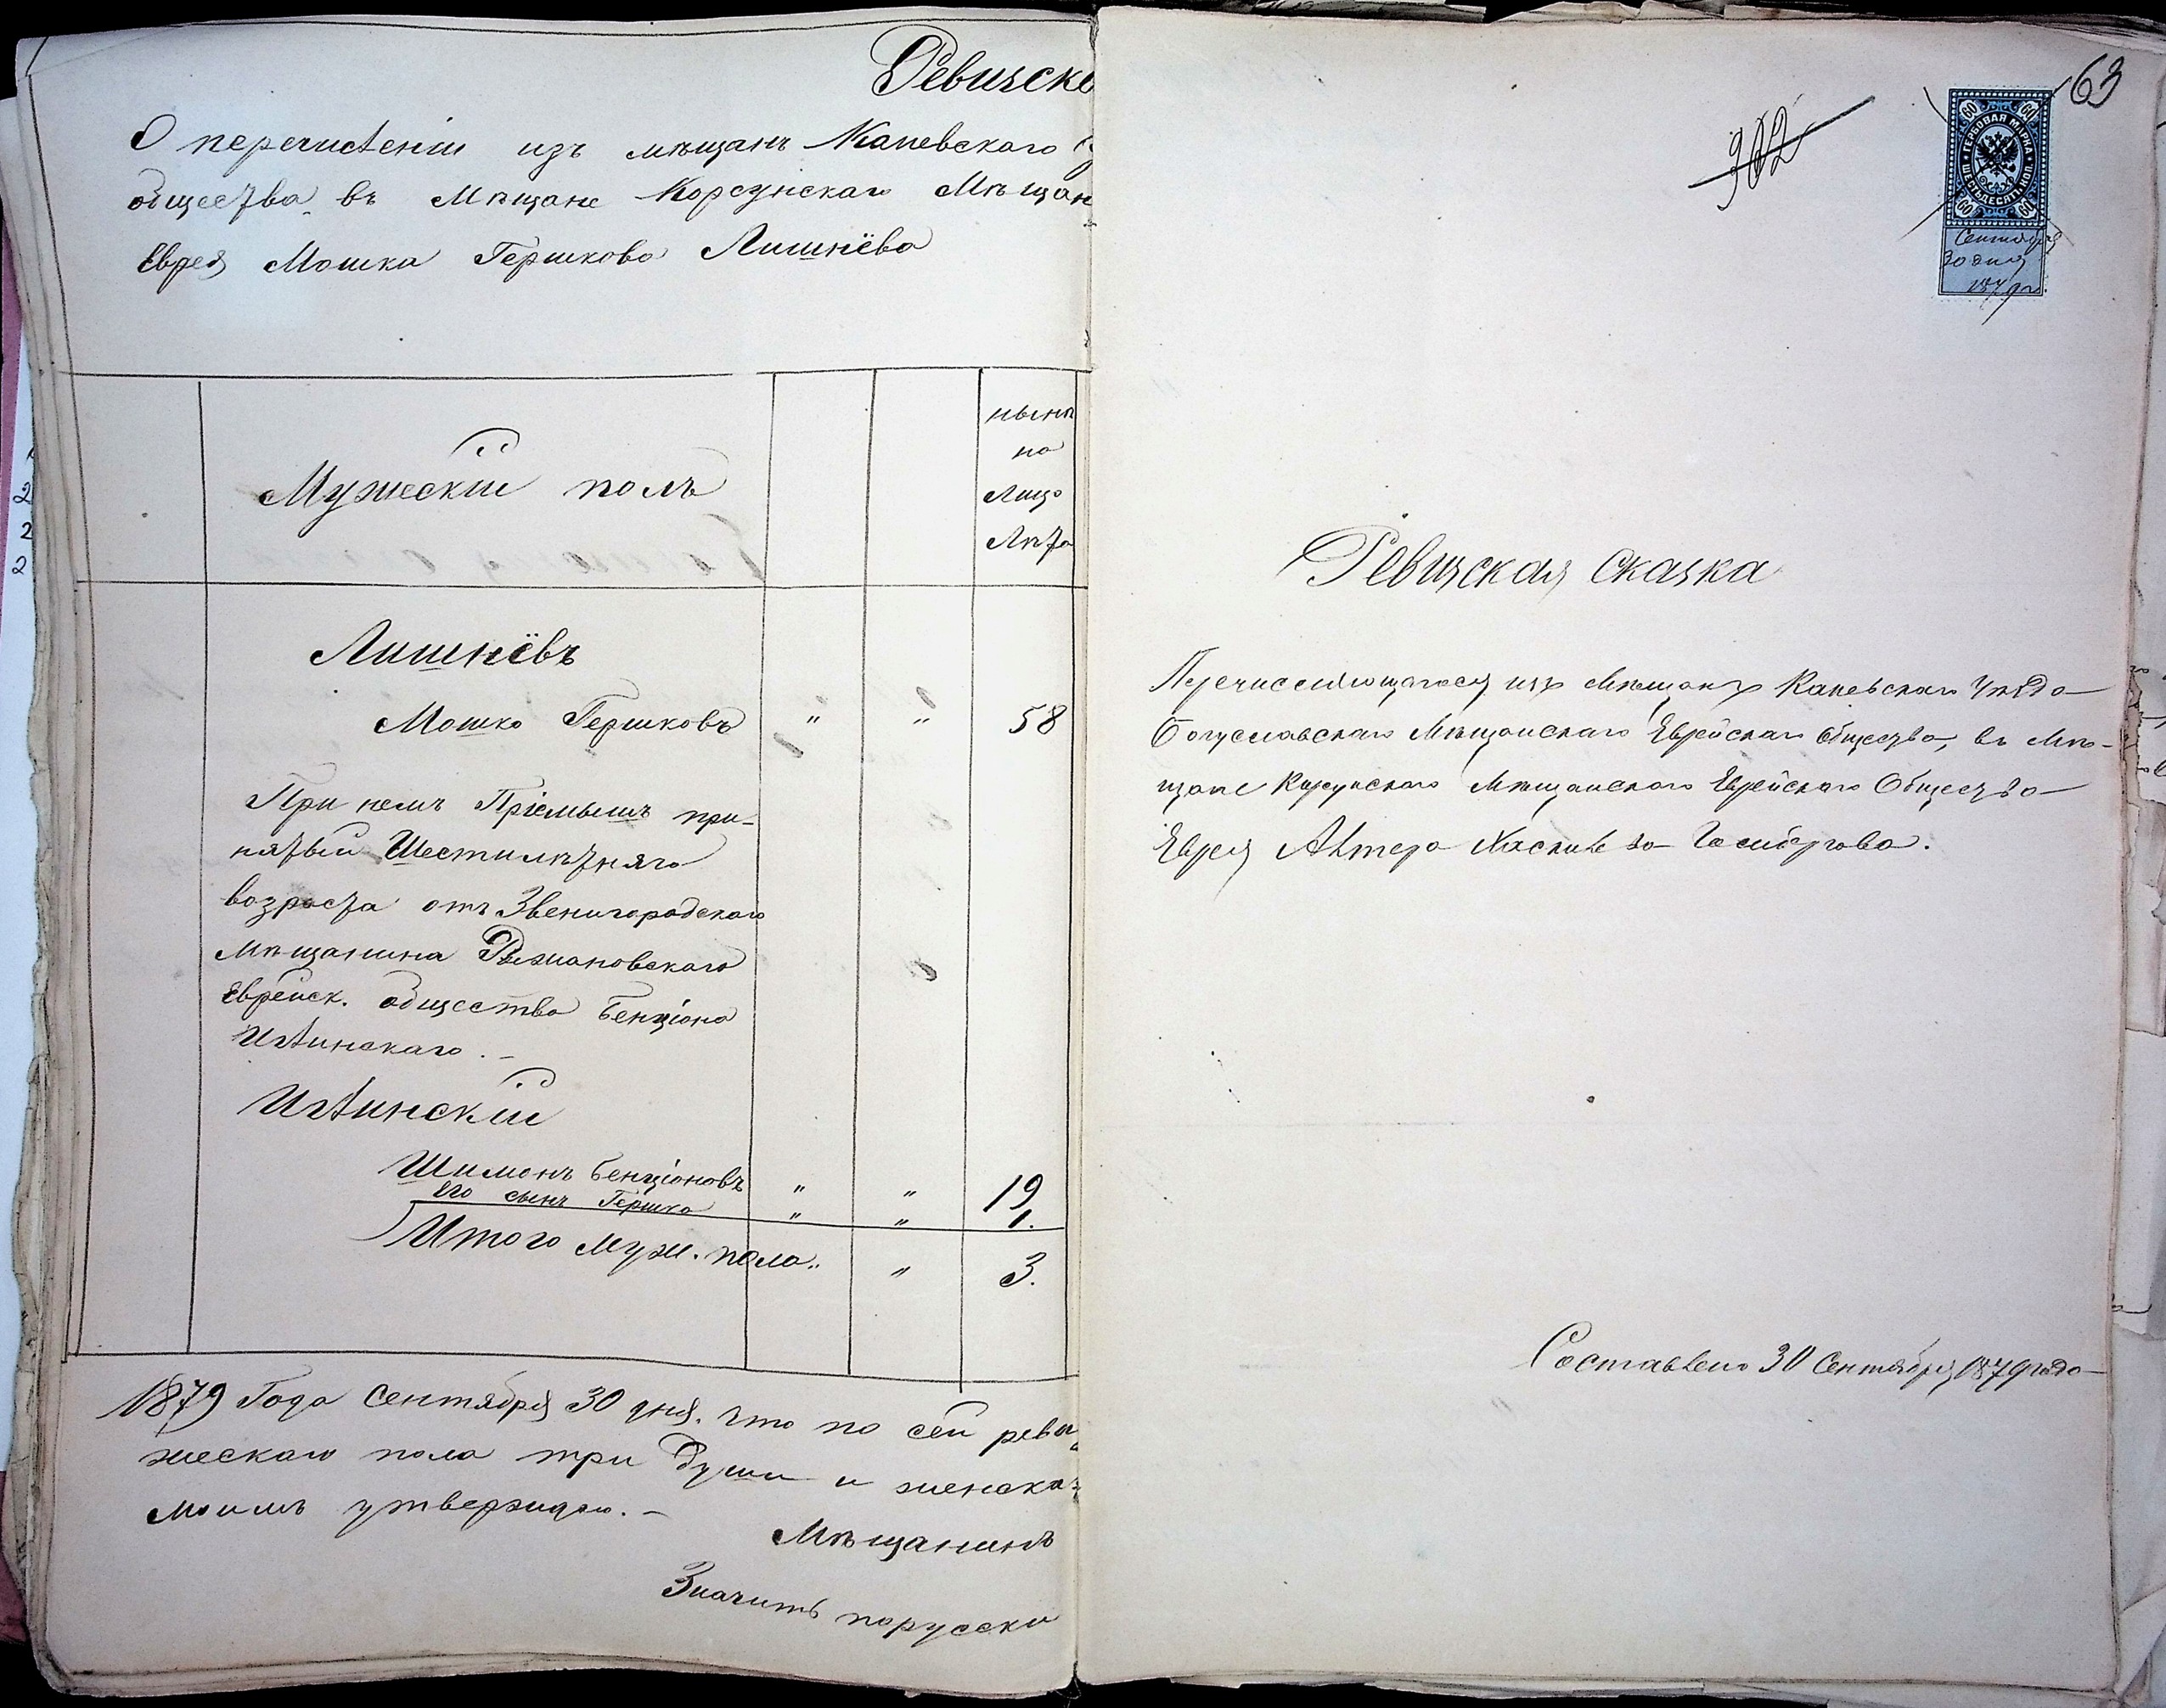 Ревизска
О перечисленіи изъ мѣщанъ Каневскаго
общества въ Мѣщане Корсунскаго Мѣщан
Еврея Мошка Гершкова Лишнёва
Мужескій полъ
нынѣ
на
Лицо
Лѣта
Лишнёвъ
Мошко Гершковъ " " 58
При немъ Пріемышъ при-
нятый Шестилѣтняго
возраста отъ Звенигородскаго
мѣщанина Рыжановскаго
Еврейск. общества Бенціона
Иглинскаго.-
Иглинскій
Шимонъ Бенціоновъ " " 19
Его сынъ Гершко " " 1.
Итого муж. пола " " 3.
1879 Года Сентября 30 дня. что по сей реви
жескаго пола три Души и женска
моимъ утверждаю.-
Мѣщанинъ
Значитъ порусски
63
902
60 60
ГЕРБОВАЯ МАРКА
ШЕСТЬДЕСЯТЪ КОП.
60 60
Сентября
30 дня
1879 г.
Ревизская Сказка
Перечисляющагося изъ Мѣщанъ Каневскаго Уѣзда
Богуславскаго Мѣщанскаго Еврейскаго Общества, въ Мѣ-
щане Корсунскаго Мѣщанскаго Еврейскаго Общества
Еврея Алтера
Составлено 30 Сентября 1879 года